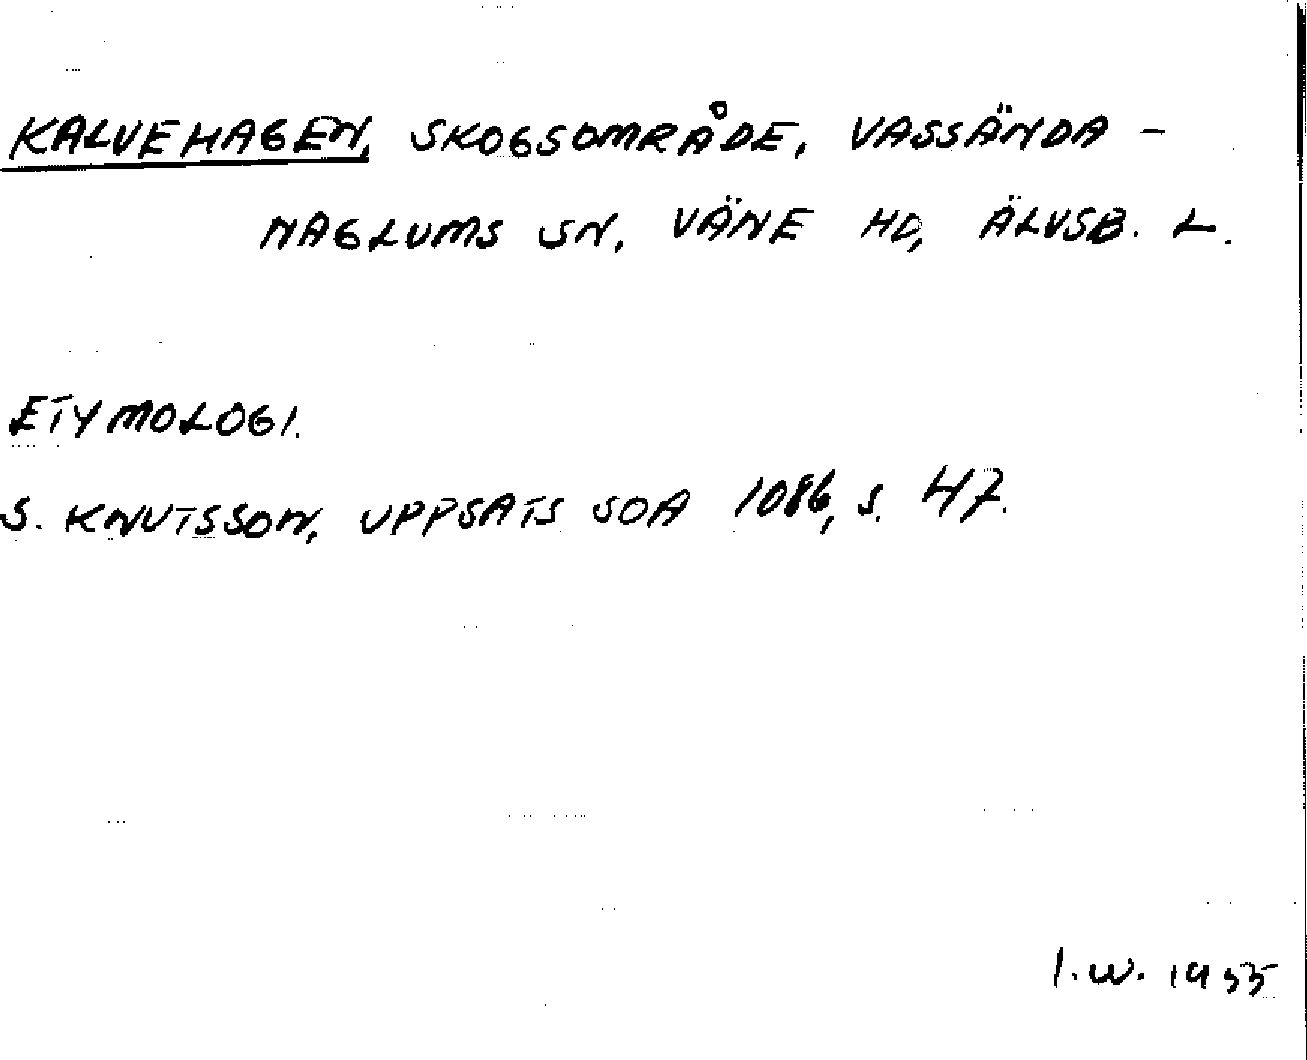 KALVEHAGEN, SKOGSOMRÅDE, VASSÄNDA -
NAGLUMS SN, VÄNE HD, ÄLVSB. L.
ETYMOLOGI.
S. KNUTSSON, UPPSATS SOA 1086, S. 47.
I.W. 1955